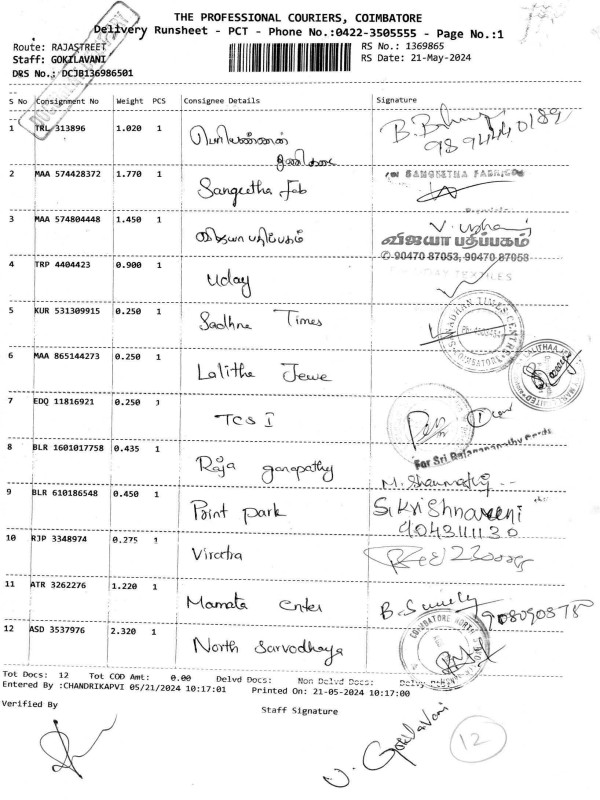 THE PROFESSIONAL COURIERS, COIMBATORE
Delivery Runsheet - PCT - Phone No.:0422-3505555 - Page No.:1
Route: RAJASTREET
Staff: GOKILAVANI
DRS No.: DCJB136986501
RS No.: 1369865
RS Date: 21-May-2024
S No Consignment No Weight PCS Consignee Details Signature
1 TRL 313896 1.020 1
9894440189
2 MAA 574428372 1.770 1 Sangeetha Fab
SANGEETHA FABRICS
3 MAA 574804448 1.450 1 விஜயா பதிப்பகம்
விஜயா பதிப்பகம்
✆ 90470 87053, 90470 87058
4 TRP 4404423 0.900 1 Uday
TEXTILES
5 KUR 531309915 0.250 1 Sadhna Times
6 MAA 865144273 0.250 1 Lalitha Jewe
7 EDQ 11816921 0.250 1 TCS I
8 BLR 1601017758 0.435 1 Raja ganapathy
For Sri Rajaganapathy Cards
M. Shanmathy
9 BLR 610186548 0.450 1 Point park
S. Krishnaveni
9043111130
10 RJP 3348974 0.275 1 Viratha
11 ATR 3262276 1.220 1 Mamata Enter
908090875
12 ASD 3537976 2.320 1 North Sarvodhaya
COIMBATORE NORTH
Tot Docs: 12 Tot COD Amt: 0.00 Delvd Docs: Non Delvd Docs:
Entered By :CHANDRIKAPVI 05/21/2024 10:17:01 Printed On: 21-05-2024 10:17:00
Verified By Staff Signature
V. Gokilavani
12